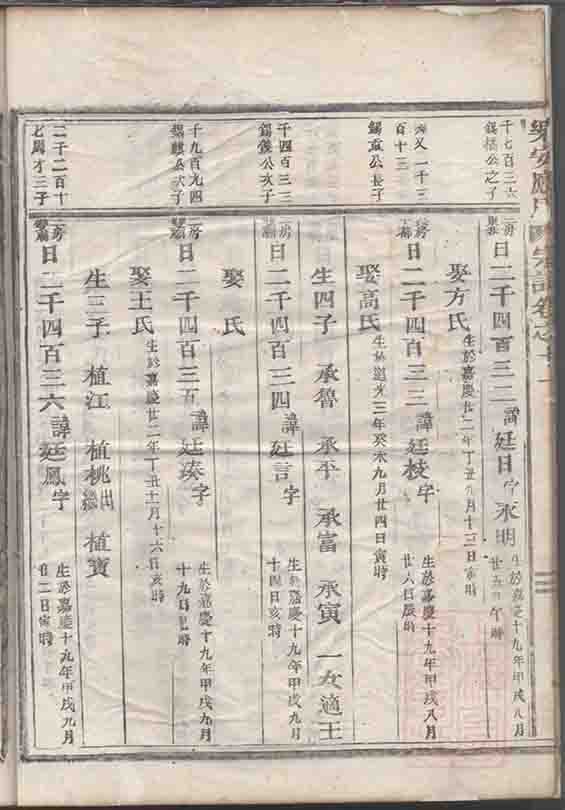 千七百三六
錫橋公之子
日二千四百三二 諱廷日字永明
生於嘉慶十九年甲戌八月
廿五日午時
娶方氏 生於嘉慶廿二年丁丑八月十三日寅時
六又一千三
百十三
錫章公長子
日二千四百三三 諱廷枝字
生於嘉慶十九年甲戌八月
廿八日辰時
娶高氏 生於道光三年癸未九月廿四日寅時
生四子 承魯 承平 承富 承寅 一女適王
千四百三三
錫公次子
二房
日二千四百三四 諱廷言字
生於嘉慶十九年甲戌九月
十四日亥時
娶 氏
千九百九四
錫麒公次子
二房
日二千四百三五 諱廷瑧字
生於嘉慶十九年甲戌九月
十九日時
娶王氏 生於嘉慶廿二年丁丑十一月十六日亥時
生三子 植江 植桃出繼 植寶
二千二百十
七周才三子
二房
日二千四百三六 諱廷鳳字
生於嘉慶十九年甲戌九月
廿二日寅時